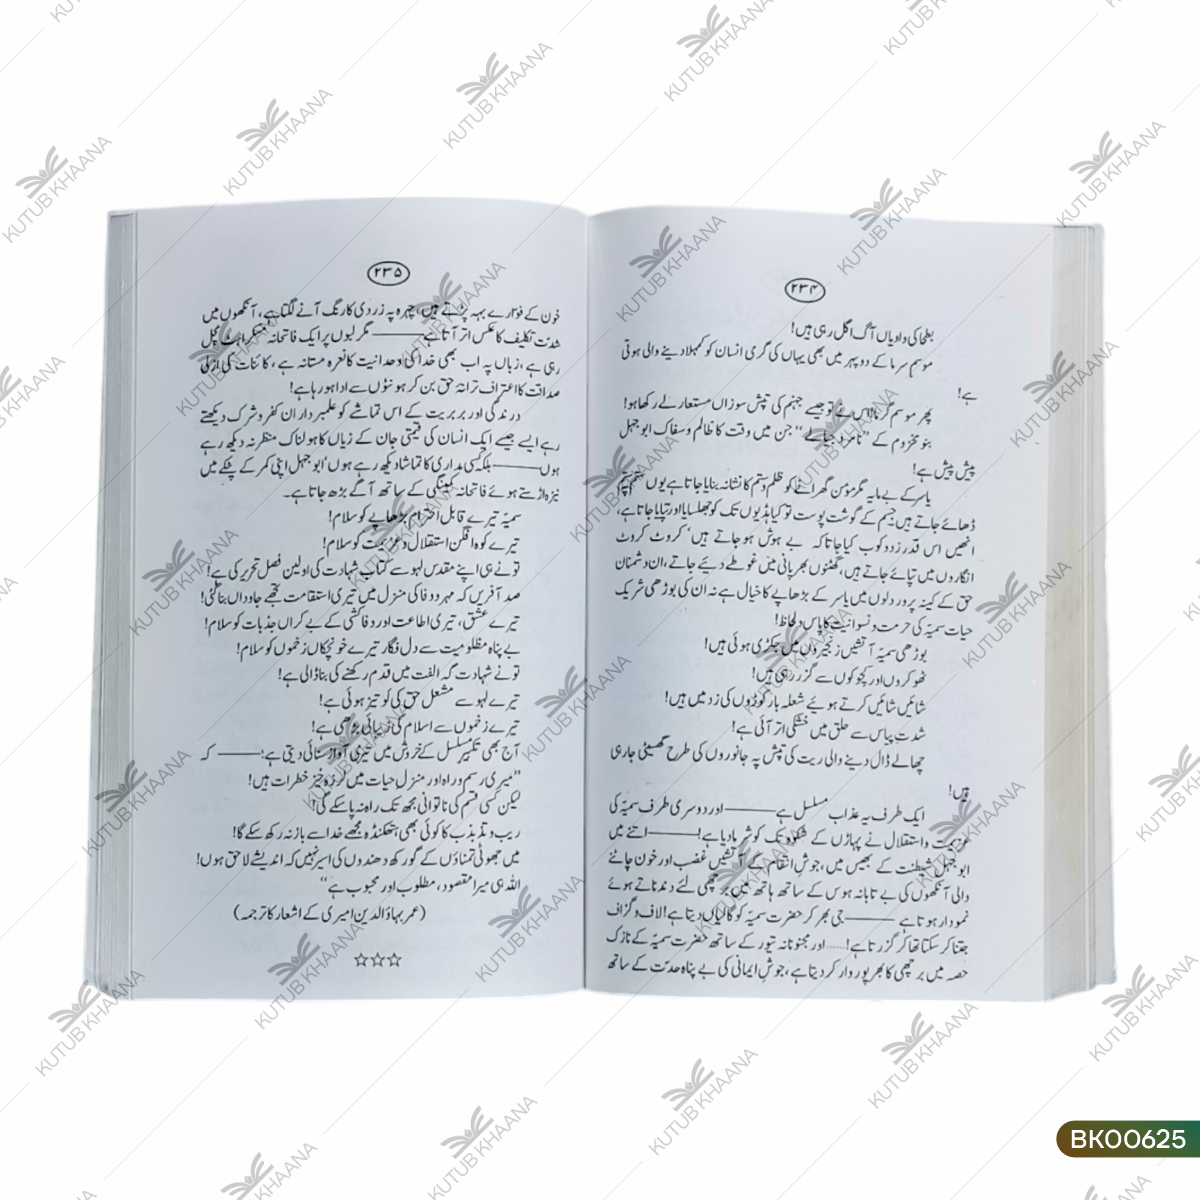 ۲۳۴
بطحا کی وادیاں آگ اگل رہی ہیں!
موسمِ سرما کے دوپہر میں بھی یہاں کی گرمی انسان کو کمہلا دینے والی ہوتی
ہے!
پھر موسمِ گرما! بس ہے تو جیسے جہنم کی تپش سوزاں مستعار لے رکھا ہو!
بنو مخزوم کے ”نامرد جیالے“ جن میں وقت کا ظالم و سفاک ابو جہل
پیش پیش ہے!
یاسر کے بے مایہ مگر مؤمن گھرانے کو ظلم و ستم کا نشانہ بنایا جاتا ہے یوں ستم پر ستم
ڈھائے جاتے ہیں جسم کے گوشت پوست تو کیا ہڈیوں تک کو جھلسایا اور تپایا جاتا ہے،
انھیں اس قدر زد و کوب کیا جاتا کہ بے ہوش ہو جاتے ہیں، کروٹ کروٹ
انگاروں میں تپائے جاتے ہیں، گھنٹوں بھر پانی میں غوطے دیئے جاتے، ان دشمنان
حق کے کینہ پرور دلوں میں یاسر کے بڑھاپے کا خیال ہے نہ ان کی بوڑھی شریک
حیات سمیّہ کی حرمت و نسوانیت کا پاس و لحاظ!
بوڑھی سمیّہ آتشیں زنجیروں میں جکڑی ہوئی ہیں!
ٹھوکروں اور کچوکوں سے گزر رہی ہیں!
شائیں شائیں کرتے ہوئے شعلہ بار کوڑوں کی زد میں ہیں!
شدتِ پیاس سے حلق میں خشکی اتر آئی ہے!
چھالے ڈال دینے والی ریت کی تپش پہ جانوروں کی طرح گھسیٹی جا رہی
ہیں!
ایک طرف یہ عذاب مسلسل ہے ــــــ اور دوسری طرف سمیّہ کی
عزیمت و استقلال نے پہاڑوں کے شکوہ تک کو شرما دیا ہے! ــــــ اتنے میں
ابو جہل شیطنت کے بھیس میں، جوشِ انتقام کے آتشیں غضب اور خون چاٹنے
والی آنکھوں کی بے تابانہ ہوس کے ساتھ ہاتھ میں برچھی لئے دندناتے ہوئے
نمودار ہوتا ہے ــــــ جی بھر کر حضرت سمیّہ کو گالیاں دیتا ہے! لاف و گزاف
جتنا کر سکتا تھا کر گزرتا ہے! ...... اور مجنونانہ تیور کے ساتھ حضرت سمیّہ کے نازک
حصہ میں برچھی کا بھرپور وار کر دیتا ہے، جوشِ ایمانی کی بے پناہ حدّت کے ساتھ
۲۳۵
خون کے فوارے بہہ پڑتے ہیں، چہرہ پہ زردی کا رنگ آنے لگتا ہے، آنکھوں میں
شدت تکلیف کا عکس اتر آتا ہے ــــــ مگر لبوں پر ایک فاتحانہ مسکراہٹ مچل
رہی ہے، زباں پہ اب بھی خدا کی وحدانیت کا نعرہ مستانہ ہے، کائنات کی ازلی
صداقت کا اعتراف ترانۂ حق بن کر ہونٹوں سے ادا ہو رہا ہے!
درندگی اور بربریت کے اس تماشے کو علمبردارانِ کفر و شرک دیکھتے
رہے ایسے جیسے ایک انسان کی قیمتی جان کے زیاں کا ہولناک منظر نہ دیکھ رہے
ہوں ــــــ بلکہ کسی مداری کا تماشا دیکھ رہے ہوں، ابو جہل اپنی کمر کے پٹکے میں
نیزہ اڑستے ہوئے فاتحانہ کمینگی کے ساتھ آگے بڑھ جاتا ہے۔
سمیّہ تیرے قابل احترام بڑھاپے کو سلام!
تیرے کوہ افگن استقلال و عزیمت کو سلام!
تو نے ہی اپنے مقدس لہو سے کتابِ شہادت کی اولین فصل تحریر کی ہے!
صد آفریں کہ مہر و وفا کی منزل میں تیری استقامت تجھے جاوداں بنا گئی!
تیرے عشق، تیری اطاعت اور وفا کشی کے بے کراں جذبات کو سلام!
بے پناہ مظلومیت سے دل فگار تیرے خونچکاں زخموں کو سلام!
تو نے شہادت گہِ الفت میں قدم رکھنے کی بنا ڈالی ہے!
تیرے لہو سے مشعل حق کی لو تیز ہوئی ہے!
تیرے زخموں سے اسلام کی ضیائی بڑھی ہے!
آج بھی تکبیر مسلسل کے خروش میں تیری آواز سنائی دیتی ہے؛ ــــــ کہ
”میری رسم و راہ اور منزلِ حیات میں لرزہ خیز خطرات ہیں!
لیکن کسی قسم کی ناتوانی مجھ تک راہ نہ پا سکے گی!
ریب و تذبذب کا کوئی بھی ہتھکنڈہ مجھے خدا سے باز نہ رکھ سکے گا!
میں جھوٹی تمناؤں کے گورکھ دھندوں کی اسیر نہیں کہ اندیشے لاحق ہوں!
اللہ ہی میرا مقصود، مطلوب اور محبوب ہے“
(عمر بہاؤ الدین امیری کے اشعار کا ترجمہ)
☆☆☆
KUTUB KHAANA
BK00625